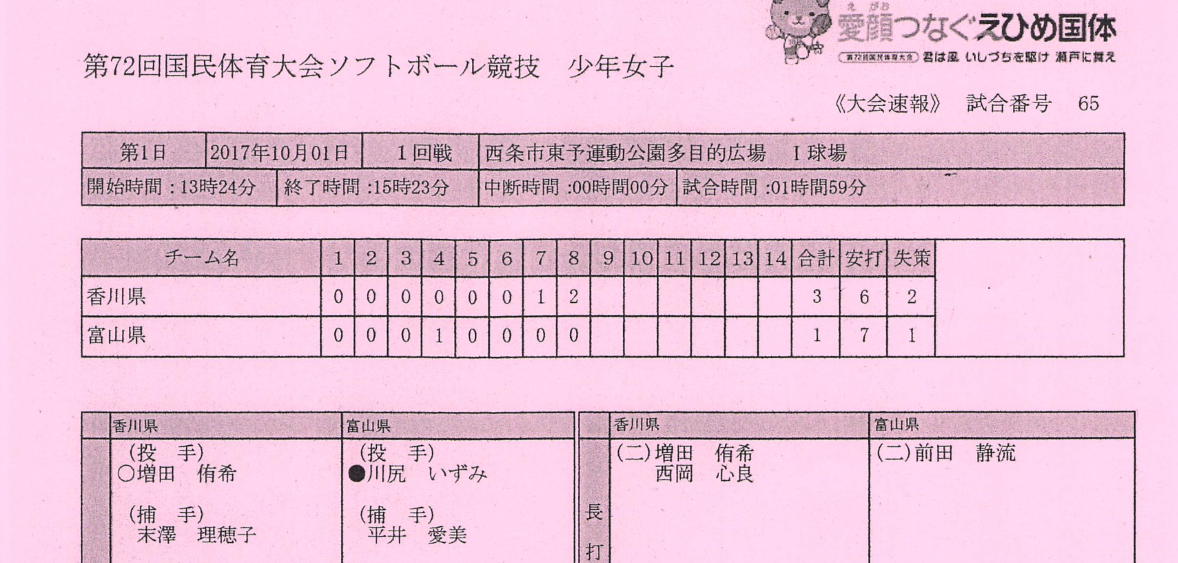 えがお
愛顔つなぐえひめ国体
第72回国民体育大会 君は風 いしづちを駆け 瀬戸に舞え
第72回国民体育大会ソフトボール競技 少年女子
《大会速報》 試合番号 65
第1日 2017年10月01日 1回戦 西条市東予運動公園多目的広場 I球場
開始時間:13時24分 終了時間:15時23分 中断時間:00時間00分 試合時間:01時間59分
チーム名 1 2 3 4 5 6 7 8 9 10 11 12 13 14 合計 安打 失策
香川県 0 0 0 0 0 0 1 2 3 6 2
富山県 0 0 0 1 0 0 0 0 1 7 1
香川県 富山県 香川県 富山県
(投 手) (投 手) (二)増田 侑希 (二)前田 静流
○増田 侑希 ●川尻 いずみ 西岡 心良
(捕 手) (捕 手) 長
末澤 理穂子 平井 愛美 打